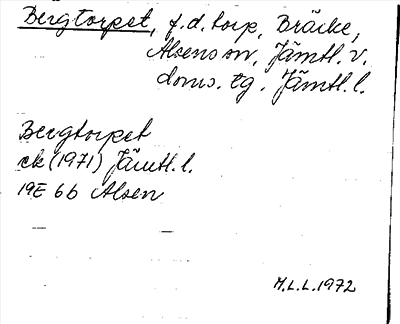 Bergtorpet, f.d. torp, Bräcke,
Alsens sn, Jämtl. v.
doms. tg. Jämtl. l.
Bergtorpet
ek (1971) Jämtl. l.
19E 6b Alsen
M.L.L. 1972